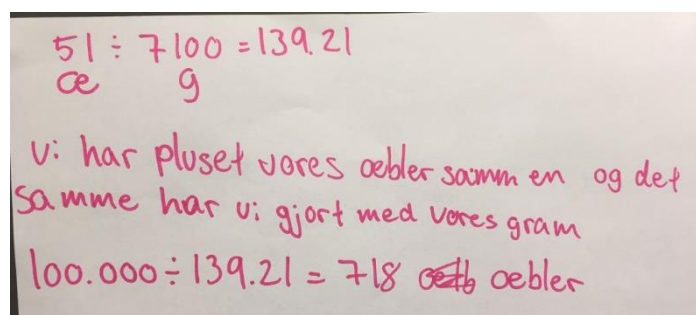 51 ÷ 7100 = 139.21
œ g
Vi har pluset vores œbler samm en og det
samme har vi gjort med vores gram
100.000 ÷ 139.21 = 718 œbler